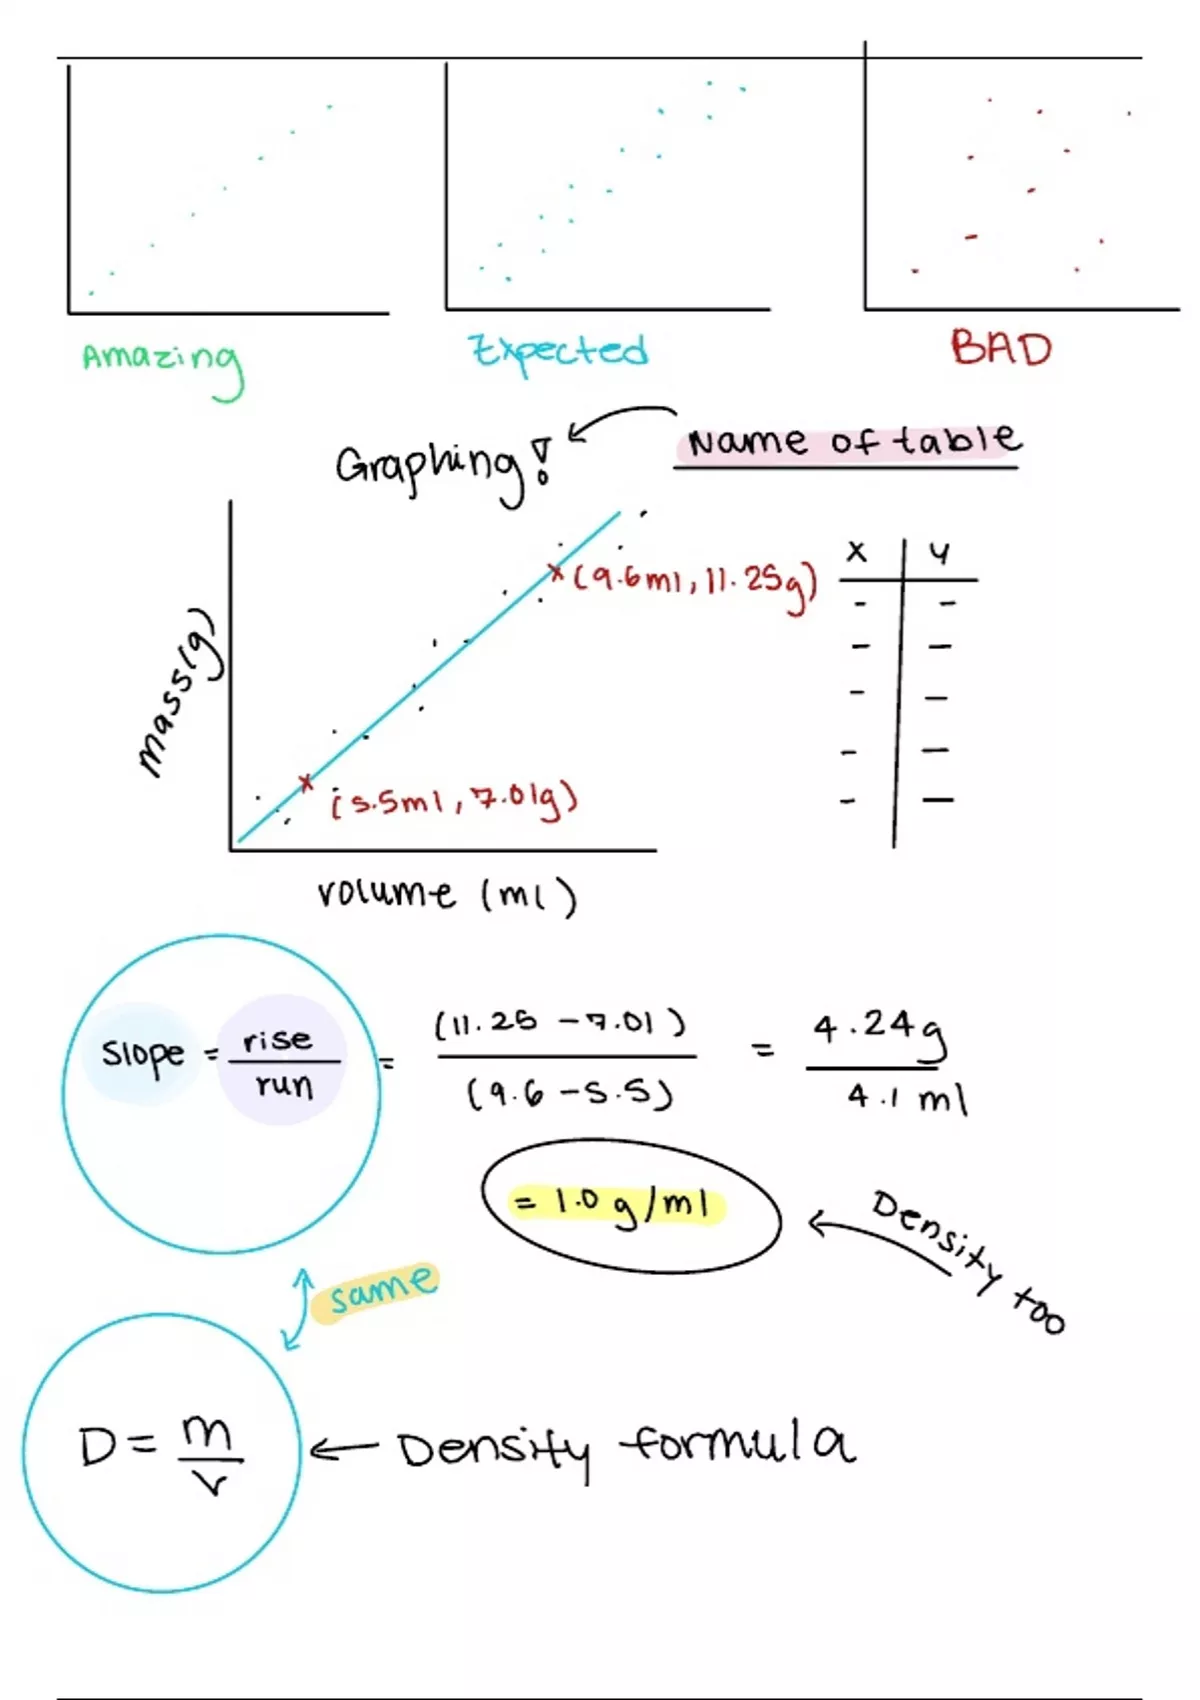 Amazing
Expected
BAD
Graphing!
Name of table
mass(g)
(9.6ml, 11.25g)
(5.5ml, 7.01g)
volume (ml)
x y
- -
- -
- -
- -
- -
Slope = rise/run = (11.25 - 7.01)/(9.6 - 5.5) = 4.24g/4.1 ml
= 1.0 g/ml
Density too
same
D = m/v ← Density formula